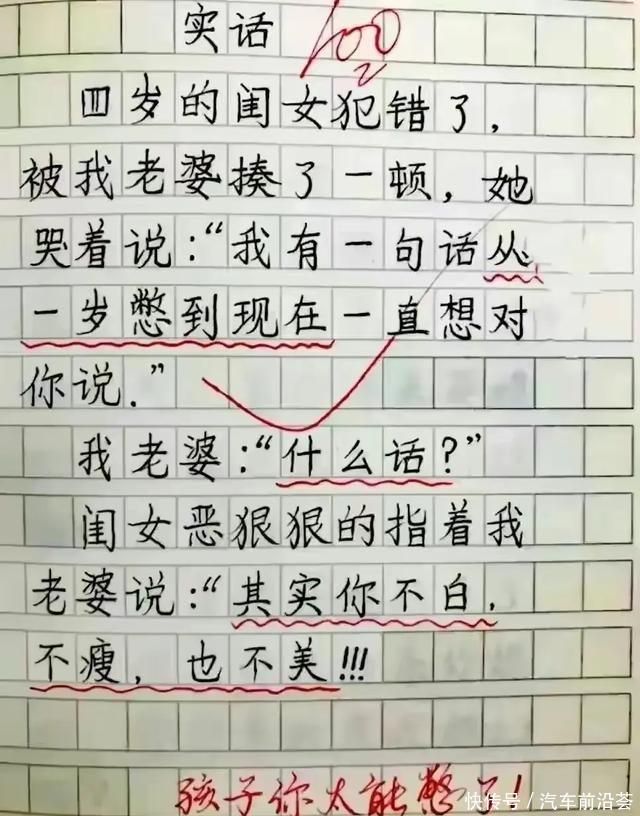 实话
100
四岁的闺女犯错了，
被我老婆揍了一顿，她
哭着说：“我有一句话从
一岁憋到现在一直想对
你说.”
我老婆：“什么话？”
闺女恶狠狠的指着我
老婆说：“其实你不白，
不瘦，也不美!!!
孩子你太能憋了！
快传号／汽车前沿荟